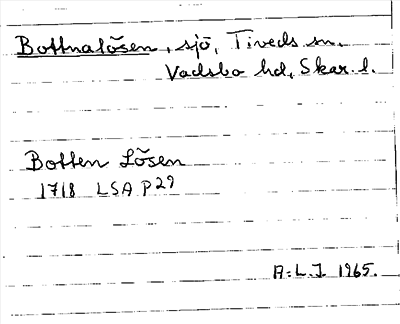 Bottnalösen, sjö, Tiveds sn.
Vadsbo hd, Skar. l.
Botten Lösen
1718 LSA P29
A:L.J 1965.